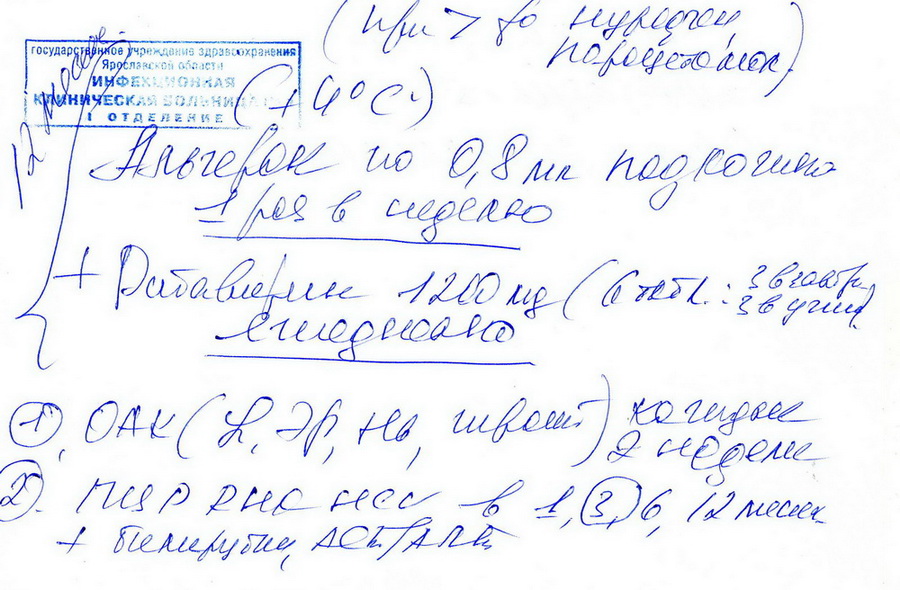 (при > t° нурофен,
парацетамол)
государственное учреждение здравоохранения
Ярославской области
ИНФЕКЦИОННАЯ
КЛИНИЧЕСКАЯ БОЛЬНИЦА
1 ОТДЕЛЕНИЕ
12 месяцев
(+4°С)
Альгерон по 0,8 мл подкожно
1 раз в неделю
+ Рибавирин 1200 mg (6 табл.: 3 в завтр.
3 в ужин)
ежедневно
1, ОАК (L, Эр, Hb, тромб) каждые
2 недели
2. ПЦР РНК HCV в 1, 3, 6, 12 месяц
+ билирубин, АСТ/АЛТ